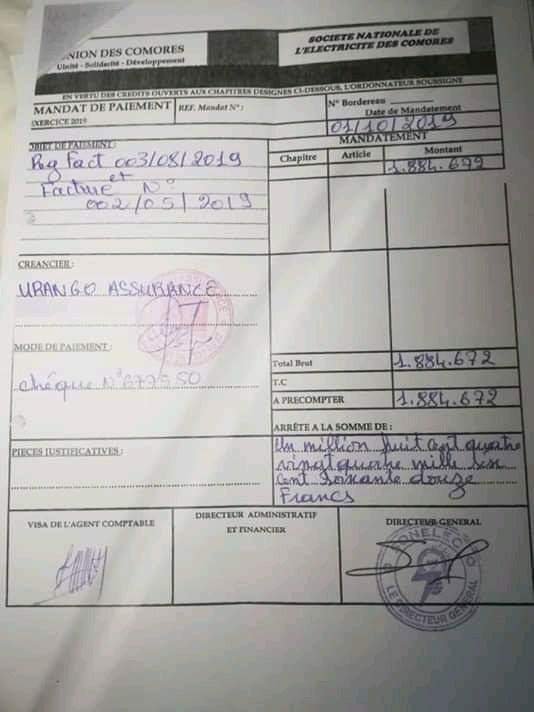 UNION DES COMORES
Unité - Solidarité - Développement
SOCIETE NATIONALE DE
L'ELECTRICITE DES COMORES
EN VERTU DES CREDITS OUVERTS AUX CHAPITRES DESIGNES CI-DESSOUS, L'ORDONNATEUR SOUSSIGNE
MANDAT DE PAIEMENT
EXERCICE 2019
REF. Mandat N° :
N° Bordereau
Date de Mandatement
01/10/2019
OBJET DE PAIEMENT :
Reg Fact 003/08/2019
et
Facture N°
002/05/2019
MANDATEMENT
Chapitre Article Montant
1.884.672
CREANCIER :
URANGO ASSURANCE
MODE DE PAIEMENT :
chéque N°677550
Total Brut 1.884.672
T.C
A PRECOMPTER 1.884.672
ARRÊTE A LA SOMME DE :
Un million huit cent quatre
vingt quatre mille six
cent soixante douze
Francs
PIECES JUSTIFICATIVES :
VISA DE L'AGENT COMPTABLE
DIRECTEUR ADMINISTRATIF
ET FINANCIER
DIRECTEUR GENERAL
LE DIRECTEUR GENERAL